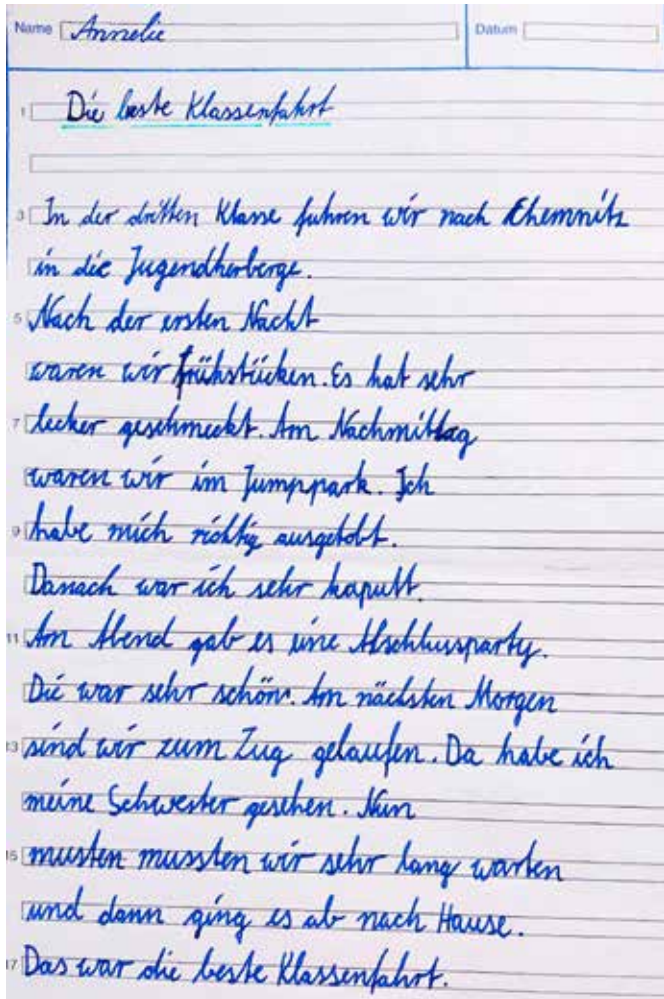 Name Annelie Datum
1 Die beste Klassenfahrt
3 In der dritten Klasse fuhren wir nach Chemnitz
in die Jugendherberge.
5 Nach der ersten Nacht
waren wir frühstücken. Es hat sehr
7 lecker geschmeckt. Am Nachmittag
waren wir im Jumppark. Ich
9 habe mich richtig ausgetobt.
Danach war ich sehr kaputt.
11 Am Abend gab es eine Abschlussparty.
Die war sehr schön. Am nächsten Morgen
13 sind wir zum Zug gelaufen. Da habe ich
meine Schwester gesehen. Nun
15 musten mussten wir sehr lang warten
und dann ging es ab nach Hause.
17 Das war die beste Klassenfahrt.